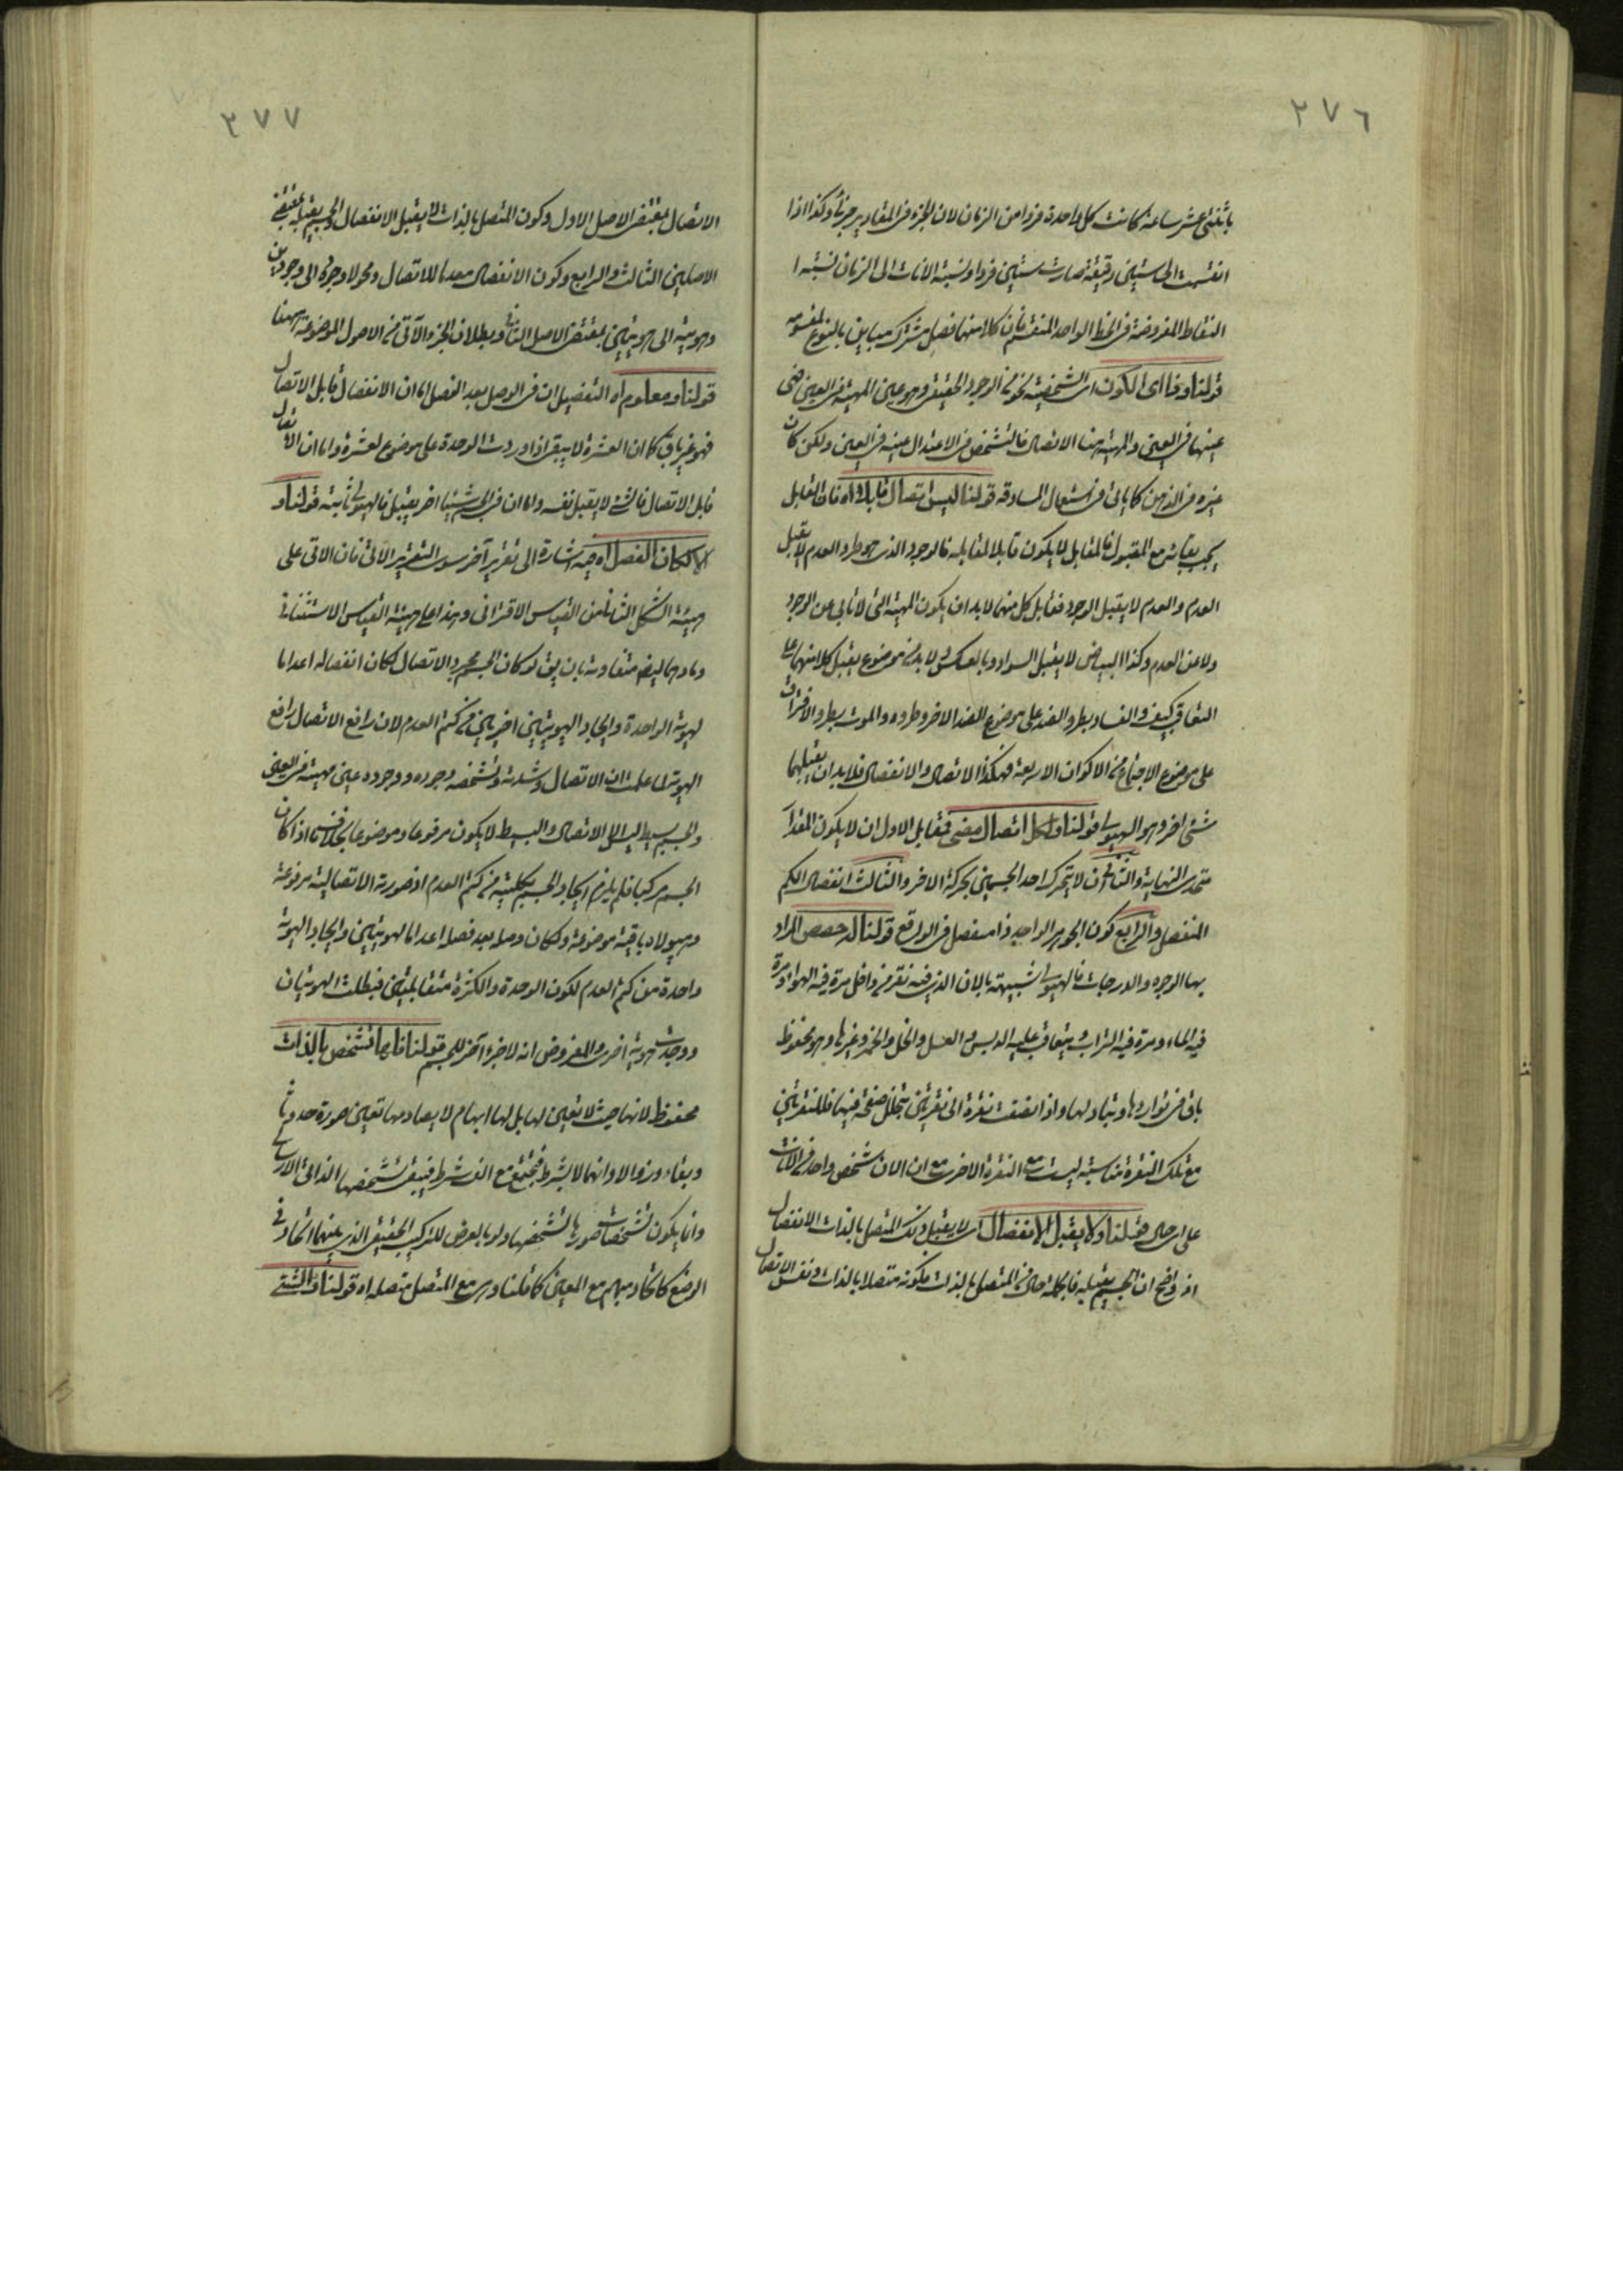 ٢٧٦
باثنتى عشر ساعة كانت كل واحدة فردا من الزمان لان الجزء فى المقادير جزئى وكذا اذا
انقسمت الى ستين دقيقة صارت ستين فردا ونسبة الانات الى الزمان نسبة
النقاط المفروضة فى الخط الواحد المنقسم فان كلا منها فصل مشترك مباين بالنوع لمقسومه
قولنا وفا اى الكون اى الشخصية نحو من الوجود الحقيقى وهو عين المهية فى العين فهى
عينها فى العين والمهية هنا الاتصال فالتشخص فى الاعتدال عينه فى العين ولكن كان
غيره فى الذهن كما ياتى فى استعمال المساوقة قولنا ليس اتصال قابلا اه فان القابل
يجب بقائه مع المقبول فالمقابل لا يكون قابلا لمقابله فالوجود الذى هو طرد العدم لا يقبل
العدم والعدم لا يقبل الوجود فقابل كل منهما لابد ان يكون المهية التى لا تابى عن الوجود
ولا عن العدم وكذا البياض لا يقبل السواد وبالعكس بل لابد من موضوع يقبل كلا منهما على
التعاقب كيف والفساد يطرو الضد على موضوع الضد الاخر وطروه والموت يطرو الافتراق
على موضوع الاجتماع من الاكوان الاربعة فهكذا الاتصال والانفصال فلابد ان يقبلهما
شىء اخر وهو الهيولى قولنا ولكل اتصال مضى فمقابل الاول ان لا يكون المقدار
متحدى النهاية والثانى ان لا يتحرك احد الجسمين بحركة الاخر والثالث انفصال الكم
المنفصل والرابع كون الجوهر الواحد ذا مفصل فى الواقع قولنا له حصص المراد
بها الوجوه والدرجات فالهيولى شبيهة بالان الذى فيه نقر من داخل مرة فيه الهواء ومرة
فيه الماء ومرة فيه التراب ويتعاقب عليه الدبس والعسل والخل والخمر وغيرها وهو محفوظ
باق فى تواردها وتبادلها واذا انضفت نقرة الى نقرتين بتخلل صفحة فيها فللنقرتين
مع تلك النقرة مناسبة ليست مع النقرة الاخرى مع ان الان شخص واحد من الانات
على اى حال قولنا ولا يقبل الانفصال اى لا يقبل ذلك المتصل بالذات الانفصال
اذ واضح ان الجسم يقبله فالكلام فى المتصل بالذات بكونه متصلا بالذات ونفس الاتصال
٢٧٧
الاتصال بمقتضى الاصل الاول وكون المتصل بالذات لا يقبل الانفصال والجسم يقبله بمقتضى
الاصلين الثالث والرابع وكون الانفصال معدما للاتصال ومحولا وجوده الى وجودين
وهويته الى هويتين بمقتضى الاصل الثانى وبطلان الجزء والآتى من الاصول الموضوعة ههنا
قولنا ومعلوم اه التفصيل ان فى الوصل بعد الفصل اما ان الانفصال قابل الاتصال
فهو غير باق كما ان العشرة لا يبقى اذا وردت الوحدة على موضوع لعشرة واما ان الاتصال
قابل الاتصال فالشىء لا يقبل نفسه واما ان فى الجسم شيئا اخر يقبل فالهيولى ثابتة قولنا و
الا لكان الفصل اه فيه اشارة الى تقرير آخر سوى التقرير الآتى فان الآتى على
هيئة الشكل الثانى من القياس الاقترانى وهذا على هيئة القياس الاستثنائى
ومادهما ايضا متفاوتة بان يق لو كان الجسم مجرد الاتصال لكان انفصاله اعداما
لهوية الواحدة وايجاد الهويتين اخريين من كتم العدم لان رافع الاتصال رافع
الهوية لما علمت ان الاتصال وشدته وتشخصه وجوده ووجوده عين مهيته فى العين
والجسم بسيط ليس الا الاتصال والبسيط لا يكون مرفوعا وموضوعا بخلاف ما اذا كان
الجسم مركبا فلم يلزم ايجاد الجسم بكليته من كتم العدم اذ صورته الاتصالية مرفوعة
وهيولاه باقية موضوعة ولكان وصله بعد فصله اعداما لهويتين وايجاد الهوية
واحدة من كتم العدم لكون الوحدة والكثرة متقابلتين فبطلت الهويتان
ووجدت هوية اخرى والمفروض انه لا جزء آخر للجسم قولنا فاما تشخص بالذات
محفوظ لانها حيث لا تعين لها بل لها ابهام لا يصادمها تعين صورة حدوثا
وبقاء وزوالا وانها لا بشرط فيجتمع مع الف شرط فيبقى تشخصها الذاتى الاراسخ
وانما يكون تشخصات صور بالتشخصها ولو بالعرض للتركيب الحقيقى الذى بينهما اتحاد فى
الوضع كاتحاد مبهم مع المعين كما قلنا وهى مع المتصل متصله اه قولنا والشىء